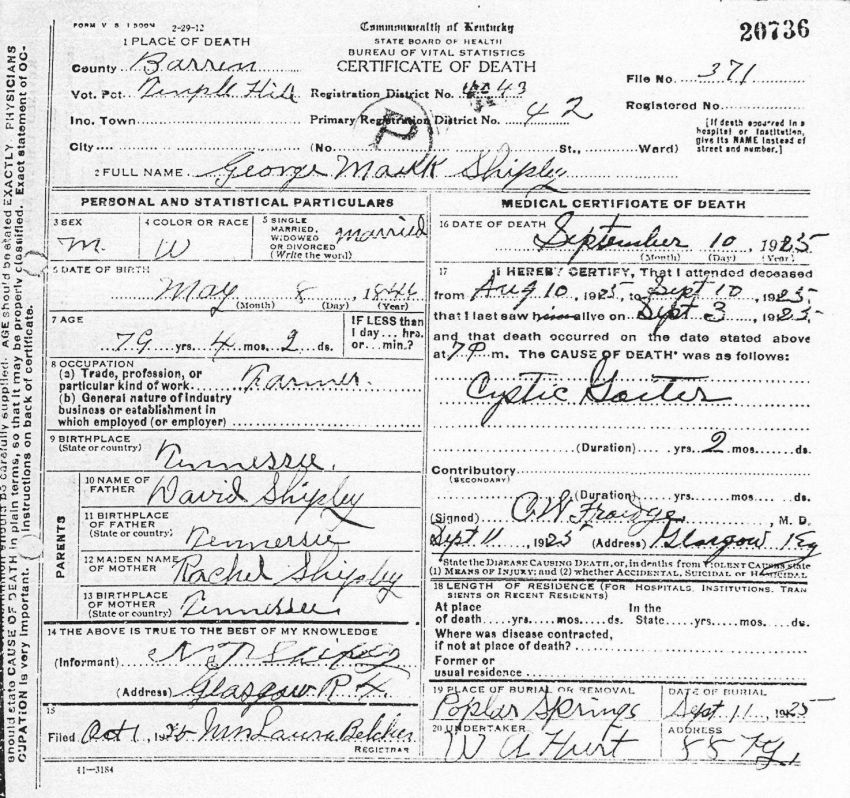 FORM V S 1 500M 2-29-12
Commonwealth of Kentucky
STATE BOARD OF HEALTH
BUREAU OF VITAL STATISTICS
CERTIFICATE OF DEATH
20736
1 PLACE OF DEATH
County Barren
Vot. Pct Temple Hill
Inc. Town
City
Registration District No. 43
Primary Registration District No. 42
(No. St., Ward)
File No. 371
Registered No.
[If death occurred in a hospital or institution, give its NAME instead of street and number.]
2 FULL NAME George Mark Shipley
PERSONAL AND STATISTICAL PARTICULARS
3 SEX
M.
4 COLOR OR RACE
W
5 SINGLE MARRIED, WIDOWED OR DIVORCED (Write the word)
married
6 DATE OF BIRTH
May 8, 1846
(Month) (Day) (Year)
7 AGE
79 yrs. 4 mos. 2 ds.
IF LESS than 1 day... hrs. or... min.?
8 OCCUPATION
(a) Trade, profession, or particular kind of work Farmer.
(b) General nature of industry business or establishment in which employed (or employer)
9 BIRTHPLACE
(State or country) Tennessee.
PARENTS
10 NAME OF FATHER David Shipley
11 BIRTHPLACE OF FATHER (State or country) Tennessee
12 MAIDEN NAME OF MOTHER Rachel Shipley
13 BIRTHPLACE OF MOTHER (State or country) Tennessee
14 THE ABOVE IS TRUE TO THE BEST OF MY KNOWLEDGE
(Informant) Shipley
(Address) Glasgow R 4.
15
Filed Oct 1, 1925 Mrs Laura Belcher
REGISTRAR
41—3184
MEDICAL CERTIFICATE OF DEATH
16 DATE OF DEATH
September 10, 1925
(Month) (Day) (Year)
17 I HEREBY CERTIFY, That I attended deceased
from Aug 10, 1925, to Sept 10, 1925
that I last saw him alive on Sept 3, 1925
and that death occurred on the date stated above
at 7 P m. The CAUSE OF DEATH* was as follows:
Cystic Goiter
(Duration) yrs. 2 mos. ds.
Contributory
(SECONDARY)
(Duration) yrs. mos. ds.
(Signed) C. W. Froedge, M. D.
Sept 11, 1925 (Address) Glasgow Ky
*State the DISEASE CAUSING DEATH, or, in deaths from VIOLENT CAUSES state
(1) MEANS OF INJURY; and (2) whether ACCIDENTAL, SUICIDAL or HOMICIDAL
18 LENGTH OF RESIDENCE (FOR HOSPITALS, INSTITUTIONS, TRANSIENTS OR RECENT RESIDENTS)
At place of death yrs. mos. ds. In the State yrs. mos. ds.
Where was disease contracted, if not at place of death?
Former or usual residence
19 PLACE OF BURIAL OR REMOVAL
Poplar Springs
DATE OF BURIAL
Sept 11, 1925
20 UNDERTAKER
W A Hurt
ADDRESS
88 Ky.
should be carefully supplied. AGE should be stated EXACTLY. PHYSICIANS
should state CAUSE OF DEATH in plain terms, so that it may be properly classified. Exact statement of OCCUPATION is very important. instructions on back of certificate.